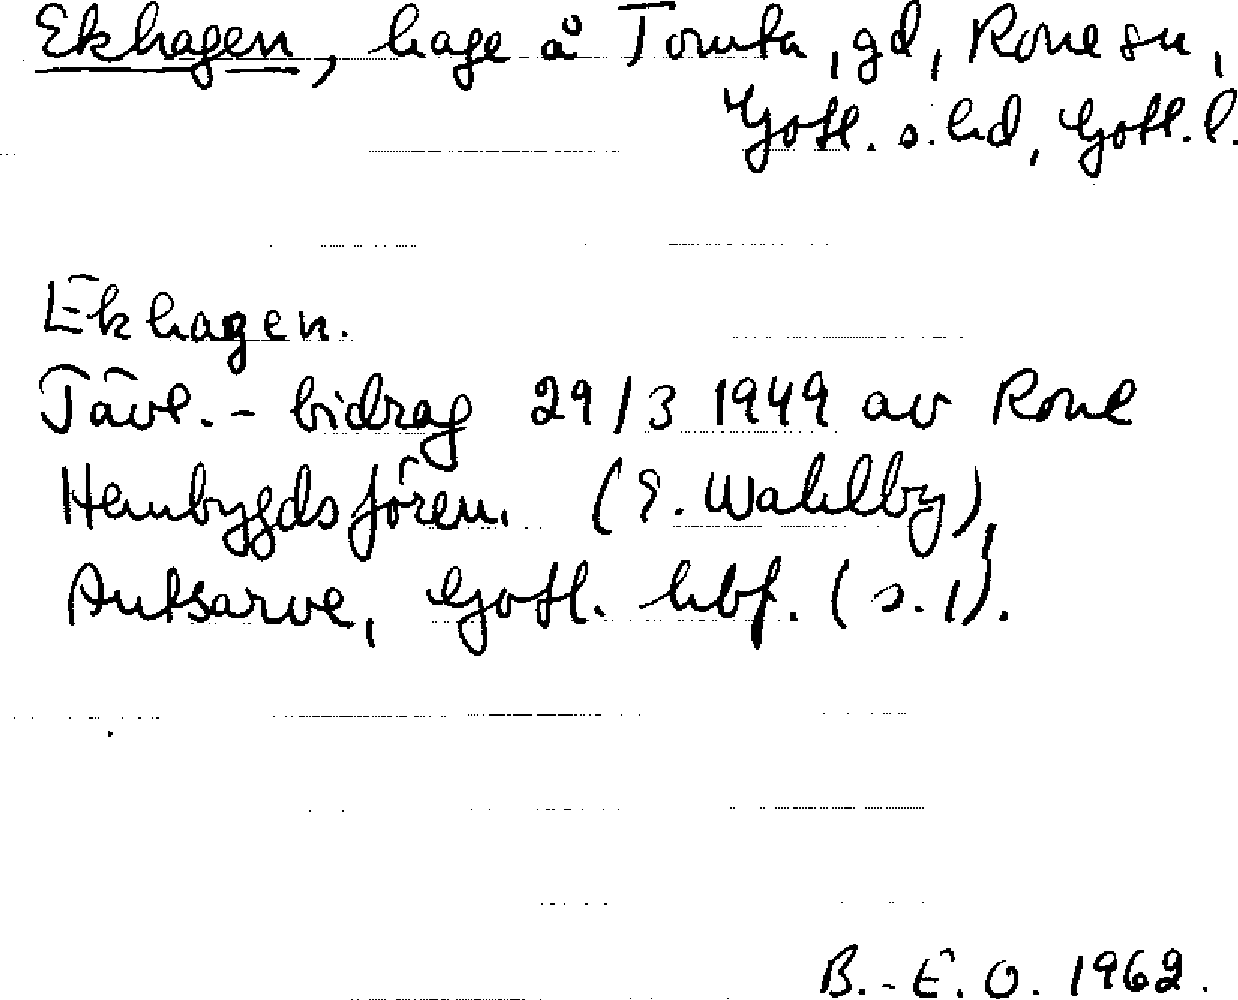 Ekhagen, hage å Tomta, gd, Rone sn,
Gotl. s. hd, Gotl. l.
Ekhagen.
Tävl. - bidrag 29/3 1949 av Rone
Hembygdsfören. (E. Wahlby),
Autsarve, Gotl. hbf. (s. 1).
B.-E. O. 1962.